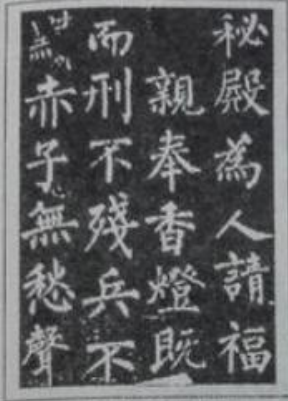 秘殿為人請福
親奉香燈既
而刑不殘兵不
赤子無愁聲